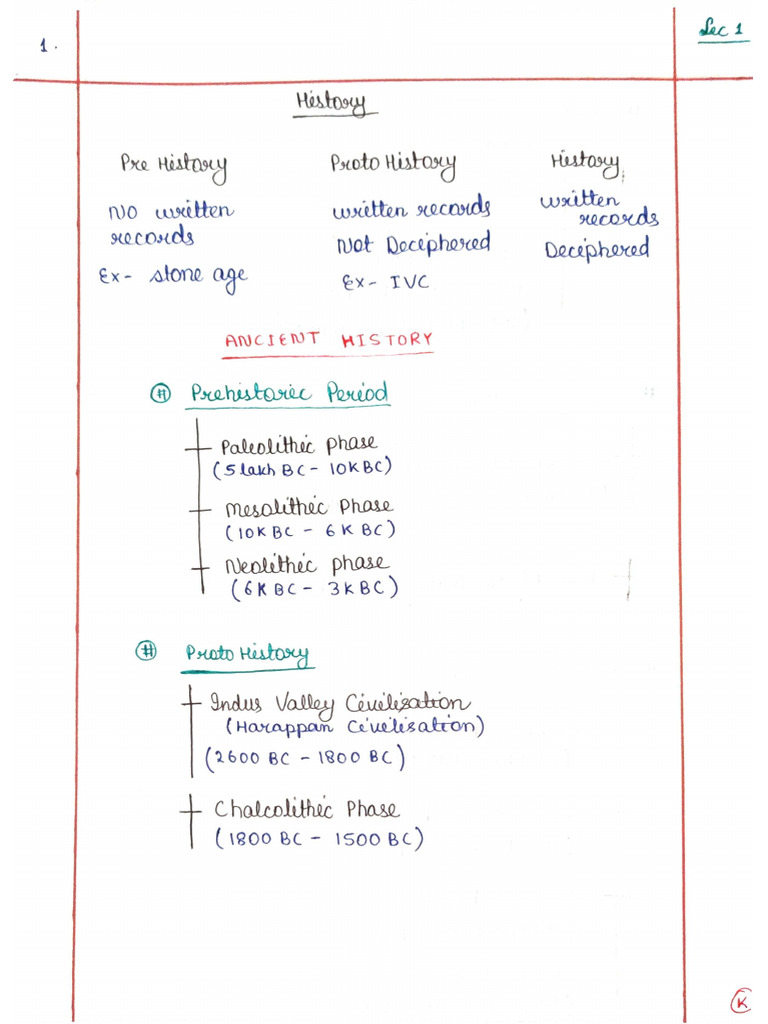 1.
Lec 1
History
Pre History
No written
records
Ex- stone age
Proto History
written records
Not Deciphered
Ex- IVC
History
written
records
Deciphered
ANCIENT HISTORY
# Prehistoric Period
Paleolithic phase
(5 lakh BC - 10K BC)
Mesolithic Phase
(10K BC - 6K BC)
Neolithic phase
(6K BC - 3K BC)
# Proto History
Indus Valley Civilisation
(Harappan Civilisation)
(2600 BC - 1800 BC)
Chalcolithic Phase
(1800 BC - 1500 BC)
K